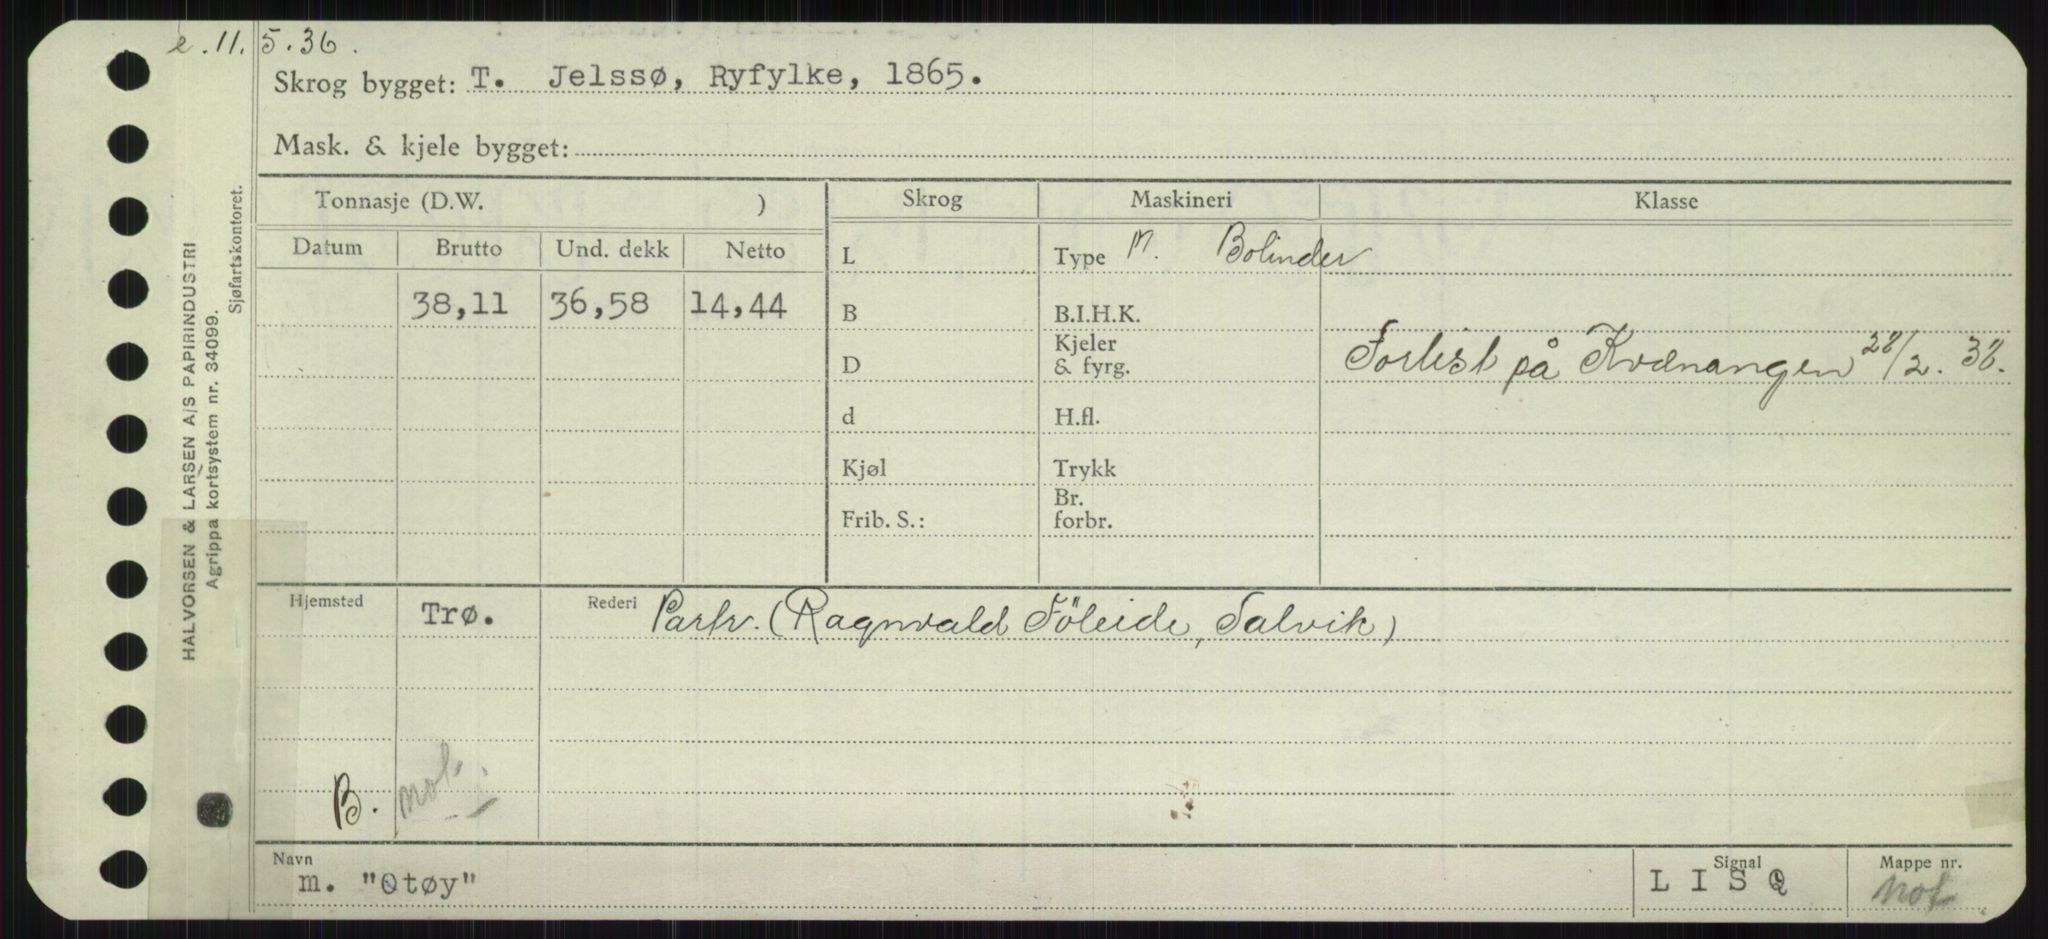 e. 11. 5. 36.
Skrog bygget: T. Jelssø, Ryfylke, 1865.
Mask. & kjele bygget:
Tonnasje (D.W. ) Skrog Maskineri Klasse
Datum Brutto Und. dekk Netto L Type M. Bolinder
38,11 36,58 14,44 B B.I.H.K.
D Kjeler & fyrg. Forlist på Kvænangen 28/2. 38.
d H.fl.
Kjøl Trykk
Frib. S.: Br. forbr.
Hjemsted Trø. Rederi Partr. (Ragnvald Föleide, Talvik)
B. mot.
Navn m. "Otøy" Signal L I S Q Mappe nr. mot
HALVORSEN & LARSEN A/S PAPIRINDUSTRI
Agrippa kortsystem nr. 34099.
Sjøfartskontoret.